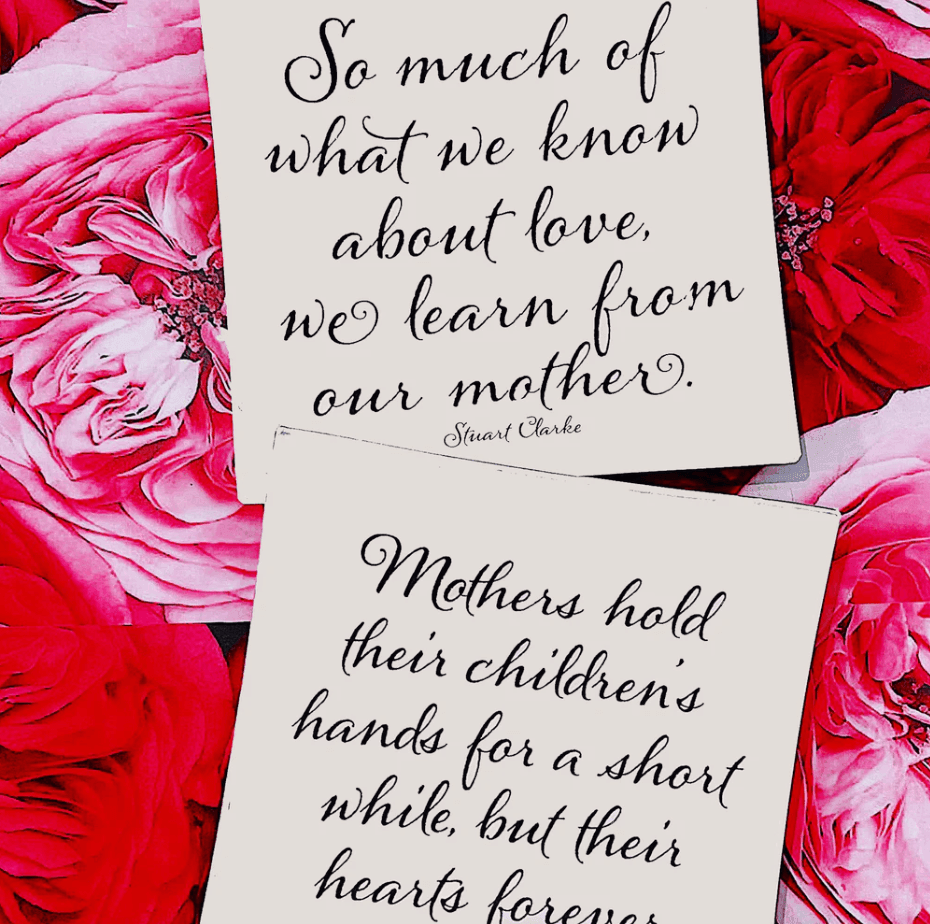 So much of
what we know
about love,
we learn from
our mother.
Stuart Clarke
Mothers hold
their children's
hands for a short
while, but their
hearts forever.